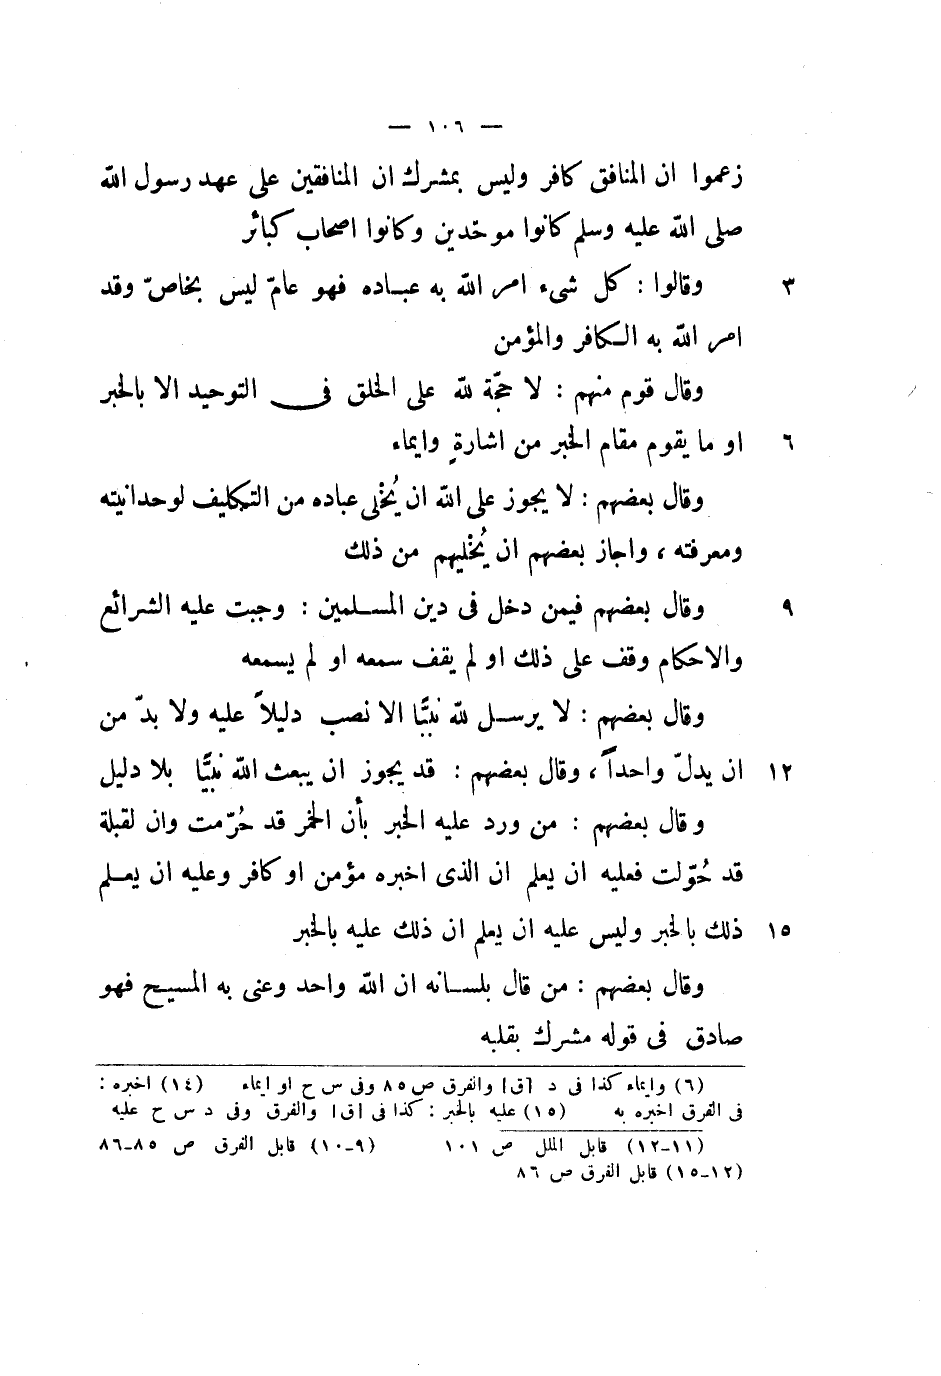 — ١٠٦ —
زعموا ان المنافق كافر وليس بمشرك ان المنافقين على عهد رسول الله
صلى الله عليه وسلم كانوا موحّدين وكانوا اصحاب كبائر
٣ وقالوا : كل شىء امر الله به عباده فهو عامّ ليس بخاصّ وقد
امر الله به الكافر والمؤمن
وقال قوم منهم : لا حجّة لله على الخلق فى التوحيد الا بالخبر
٦ او ما يقوم مقام الخبر من اشارةٍ وايماء
وقال بعضهم : لا يجوز على الله ان يُخْلى عباده من التكليف لوحدانيته
ومعرفته ، واجاز بعضهم ان يُخْليهم من ذلك
٩ وقال بعضهم فيمن دخل فى دين المسلمين : وجبت عليه الشرائع
والاحكام وقف على ذلك او لم يقف سمعه او لم يسمعه
وقال بعضهم : لا يرسل لله نبيًّا الا نصب دليلاً عليه ولا بدّ من
١٢ ان يدلّ واحداً ، وقال بعضهم : قد يجوز ان يبعث الله نبيًّا بلا دليل
وقال بعضهم : من ورد عليه الخبر بأن الخمر قد حُرّمت وان لقبلة
قد حُوّلت فعليه ان يعلم ان الذى اخبره مؤمن او كافر وعليه ان يعلم
١٥ ذلك بالخبر وليس عليه ان يعلم ان ذلك عليه بالخبر
وقال بعضهم : من قال بلسانه ان الله واحد وعنى به المسيح فهو
صادق فى قوله مشرك بقلبه
(٦) وايماء كذا فى د [ق] والفرق ص ٨٥ وفى س ح او ايماء (١٤) اخبره :
فى الفرق اخبره به (١٥) عليه بالخبر : كذا فى [ق] والفرق وفى د س ح عليه
(١١-١٢) قابل الملل ص ١٠١ (٩-١٠) قابل الفرق ص ٨٥-٨٦
(١٢-١٥) قابل الفرق ص ٨٦